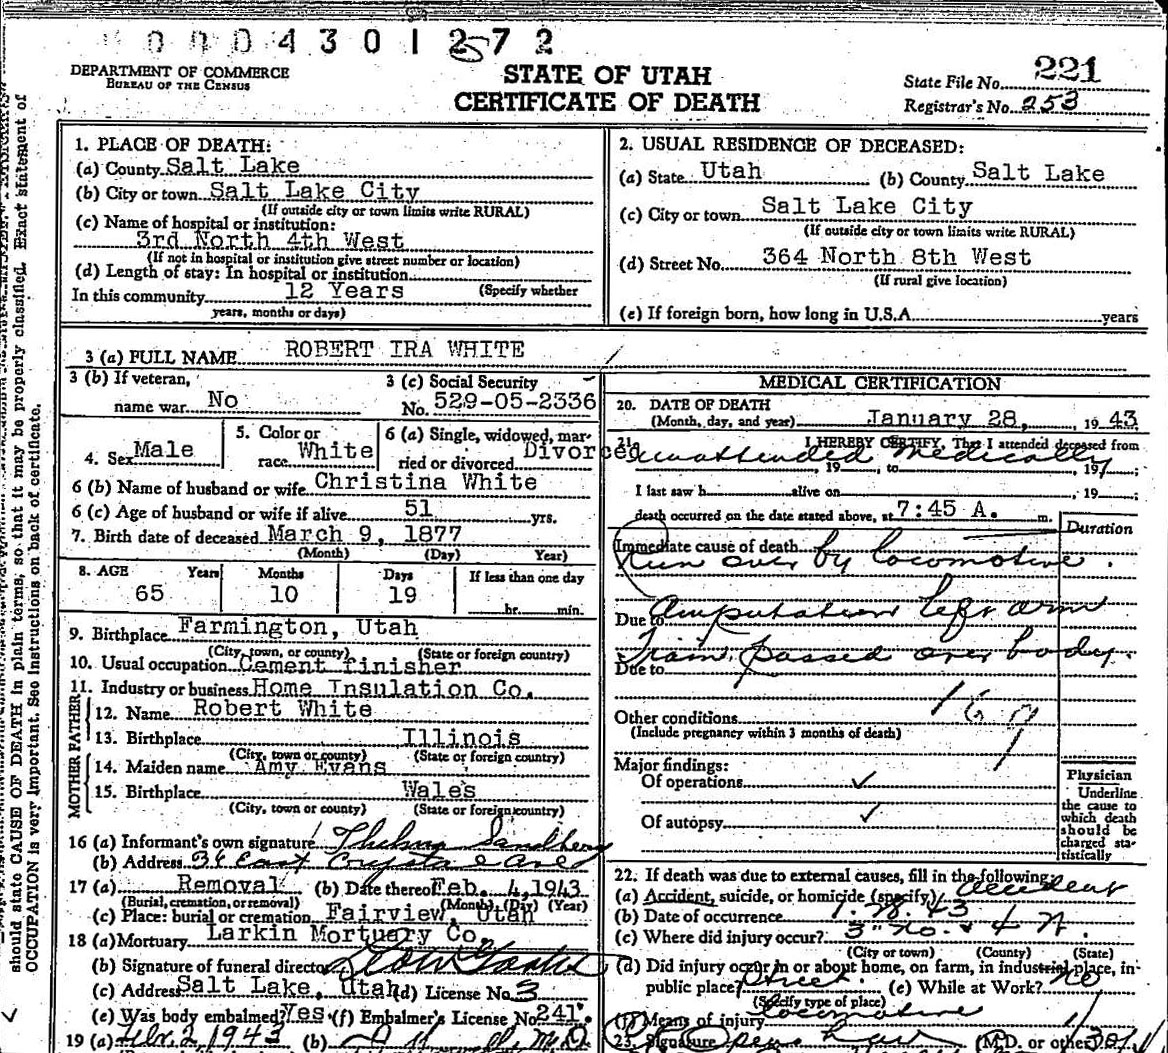 0004301272
DEPARTMENT OF COMMERCE
BUREAU OF THE CENSUS
STATE OF UTAH
CERTIFICATE OF DEATH
State File No. 221
Registrar's No. 253
should state CAUSE OF DEATH in plain terms, so that it may be properly classified. Exact statement of
OCCUPATION is very important. See instructions on back of certificate.
1. PLACE OF DEATH:
(a) County Salt Lake
(b) City or town Salt Lake City
(If outside city or town limits write RURAL)
(c) Name of hospital or institution:
3rd North 4th West
(If not in hospital or institution give street number or location)
(d) Length of stay: In hospital or institution
In this community 12 Years (Specify whether
years, months or days)
2. USUAL RESIDENCE OF DECEASED:
(a) State Utah (b) County Salt Lake
(c) City or town Salt Lake City
(If outside city or town limits write RURAL)
(d) Street No. 364 North 8th West
(If rural give location)
(e) If foreign born, how long in U.S.A. years
3 (a) FULL NAME ROBERT IRA WHITE
3 (b) If veteran, name war No
3 (c) Social Security No. 529-05-2336
4. Sex Male
5. Color or race White
6 (a) Single, widowed, married or divorced Divorced
6 (b) Name of husband or wife Christina White
6 (c) Age of husband or wife if alive 51 yrs.
7. Birth date of deceased March 9, 1877
(Month) (Day) Year)
8. AGE Years Months Days If less than one day
65 10 19 hr. min.
9. Birthplace Farmington, Utah
(City, town, or county) (State or foreign country)
10. Usual occupation Cement finisher
11. Industry or business Home Insulation Co.
FATHER
12. Name Robert White
13. Birthplace Illinois
(City, town or county) (State or foreign country)
MOTHER
14. Maiden name Amy Evans
15. Birthplace Wales
(City, town or county) (State or foreign country)
16 (a) Informant's own signature Thelma Sandberg
(b) Address 36 East Crystal Ave
17 (a) Removal (b) Date thereof Feb. 4, 1943
(Burial, cremation, or removal) (Month) (Day) (Year)
(c) Place: burial or cremation Fairview, Utah
18 (a) Mortuary Larkin Mortuary Co.
(b) Signature of funeral director
(c) Address Salt Lake, Utah (d) License No. 3
(e) Was body embalmed? Yes (f) Embalmer's License No. 241
19 (a) Febr. 2, 1943 (b) M.D.
MEDICAL CERTIFICATION
20. DATE OF DEATH
(Month, day, and year) January 28, 1943
21. I HEREBY CERTIFY, That I attended deceased from
unattended medically, 19 , to , 19 ;
I last saw h alive on , 19 ;
death occurred on the date stated above, at 7:45 A. m.
Duration
Immediate cause of death
Run over by locomotive.
Due to Amputation left arm
Train passed over body.
Due to
Other conditions
(Include pregnancy within 3 months of death)
Major findings:
Of operations ✓
Of autopsy ✓
Physician
Underline
the cause to
which death
should be
charged sta-
tistically
22. If death was due to external causes, fill in the following:
(a) Accident, suicide, or homicide (specify) accident
(b) Date of occurrence 1. 28. 43
(c) Where did injury occur? 3" No. & 4 W.
(City or town) (County) (State)
(d) Did injury occur in or about home, on farm, in industrial place, in
public place? Street. (e) While at Work? no
(Specify type of place)
(f) Means of injury locomotive
23. Signature (M.D. or other)